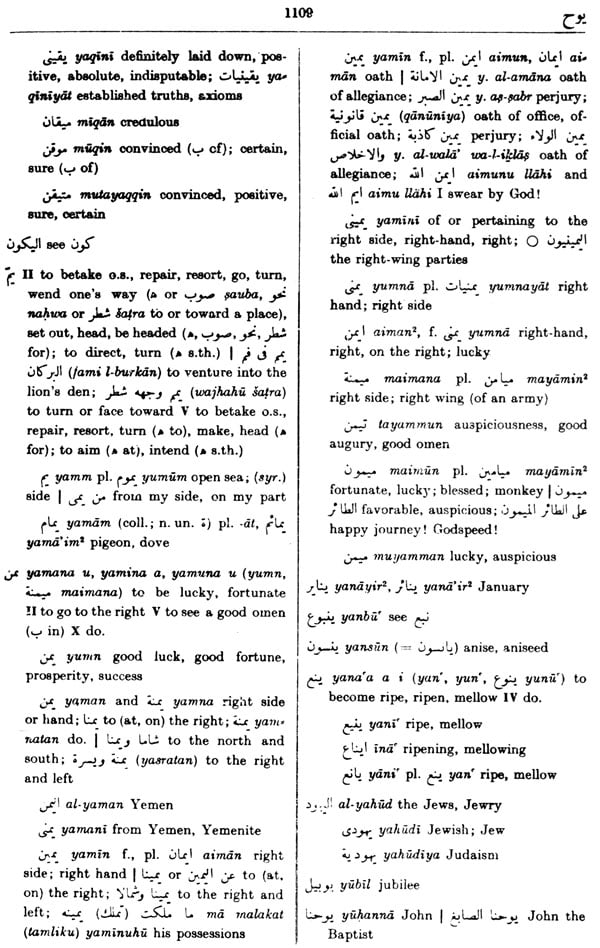 1109
يوح
يقيني yaqīnī definitely laid down, pos-
itive, absolute, indisputable; يقينيات ya-
qīnīyāt established truths, axioms
ميقان mīqān credulous
موقن mūqin convinced (ب of); certain,
sure (ب of)
متيقن mutayaqqin convinced, positive,
sure, certain
كون see اليكون
يمّ II to betake o.s., repair, resort, go, turn,
wend one's way (ه or صوب ṣauba, نحو
naḥwa or شطر šaṭra to or toward a place),
set out, head, be headed (ه, صوب, نحو, شطر
for); to direct, turn (ه s.th.) | يمم فى فم
البركان (fami l-burkān) to venture into the
lion's den; يمم وجهه شطر (wajhahū šaṭra)
to turn or face toward V to betake o.s.,
repair, resort, turn (ه to), make, head (ه
for); to aim (ه at), intend (ه s.th.)
يم yamm pl. يموم yumūm open sea; (syr.)
side | من يمى from my side, on my part
يمام yamām (coll.; n. un. ة) pl. -āt, يمائم
yamā'im² pigeon, dove
يمن yamana u, yamina a, yamuna u (yumn,
ميمنة maimana) to be lucky, fortunate
II to go to the right V to see a good omen
(ب in) X do.
يمن yumn good luck, good fortune,
prosperity, success
يمن yaman and يمنة yamna right side
or hand; يمنا to (at, on) the right; يمنة yam-
natan do. | شاما ويمنا to the north and
south; يمنة ويسرة (yasratan) to the right
and left
اليمن al-yaman Yemen
يمنى yamanī from Yemen, Yemenite
يمين yamīn f., pl. ايمان aimān right
side; right hand | يمينا or عن اليمين to (at,
on) the right; يمينا وشمالا to the right and
left; ما ملكت (تملك) يمينه mā malakat
(tamliku) yamīnuhū his possessions
يمين yamīn f., pl. ايمن aimun, ايمان ai-
mān oath | يمين الامانة y. al-amāna oath
of allegiance; يمين الصبر y. aṣ-ṣabr perjury;
يمين قانونية (qānūnīya) oath of office, of-
ficial oath; يمين كاذبة perjury; يمين الولاء
والاخلاص y. al-walā' wa-l-iklāṣ oath of
allegiance; ايمن الله aimunu llāhi and
ايم الله aimu llāhi I swear by God!
يمينى yamīnī of or pertaining to the
right side, right-hand, right; ○ اليمينيون
the right-wing parties
يمنى yumnā pl. يمنيات yumnayāt right
hand; right side
ايمن aiman², f. يمنى yumnā right-hand,
right, on the right; lucky
ميمنة maimana pl. ميامن mayāmin²
right side; right wing (of an army)
تيمن tayammun auspiciousness, good
augury, good omen
ميمون maimūn pl. ميامين mayāmīn²
fortunate, lucky; blessed; monkey | ميمون
الطائر favorable, auspicious; على الطائر الميمون
happy journey! Godspeed!
ميمن muyamman lucky, auspicious
يناير yanāyir², ينائر yanā'ir² January
ينبوع yanbū' see نبع
ينسون yansūn (= يانسون) anise, aniseed
ينع yana'a a i (yan', yun', ينوع yunū') to
become ripe, ripen, mellow IV do.
ينيع yanī' ripe, mellow
ايناع īnā' ripening, mellowing
يانع yāni' pl. ينع yan' ripe, mellow
اليهود al-yahūd the Jews, Jewry
يهودى yahūdī Jewish; Jew
يهودية yahūdīya Judaism
يوبيل yūbīl jubilee
يوحنا yūḥannā John | يوحنا الصابغ John the
Baptist